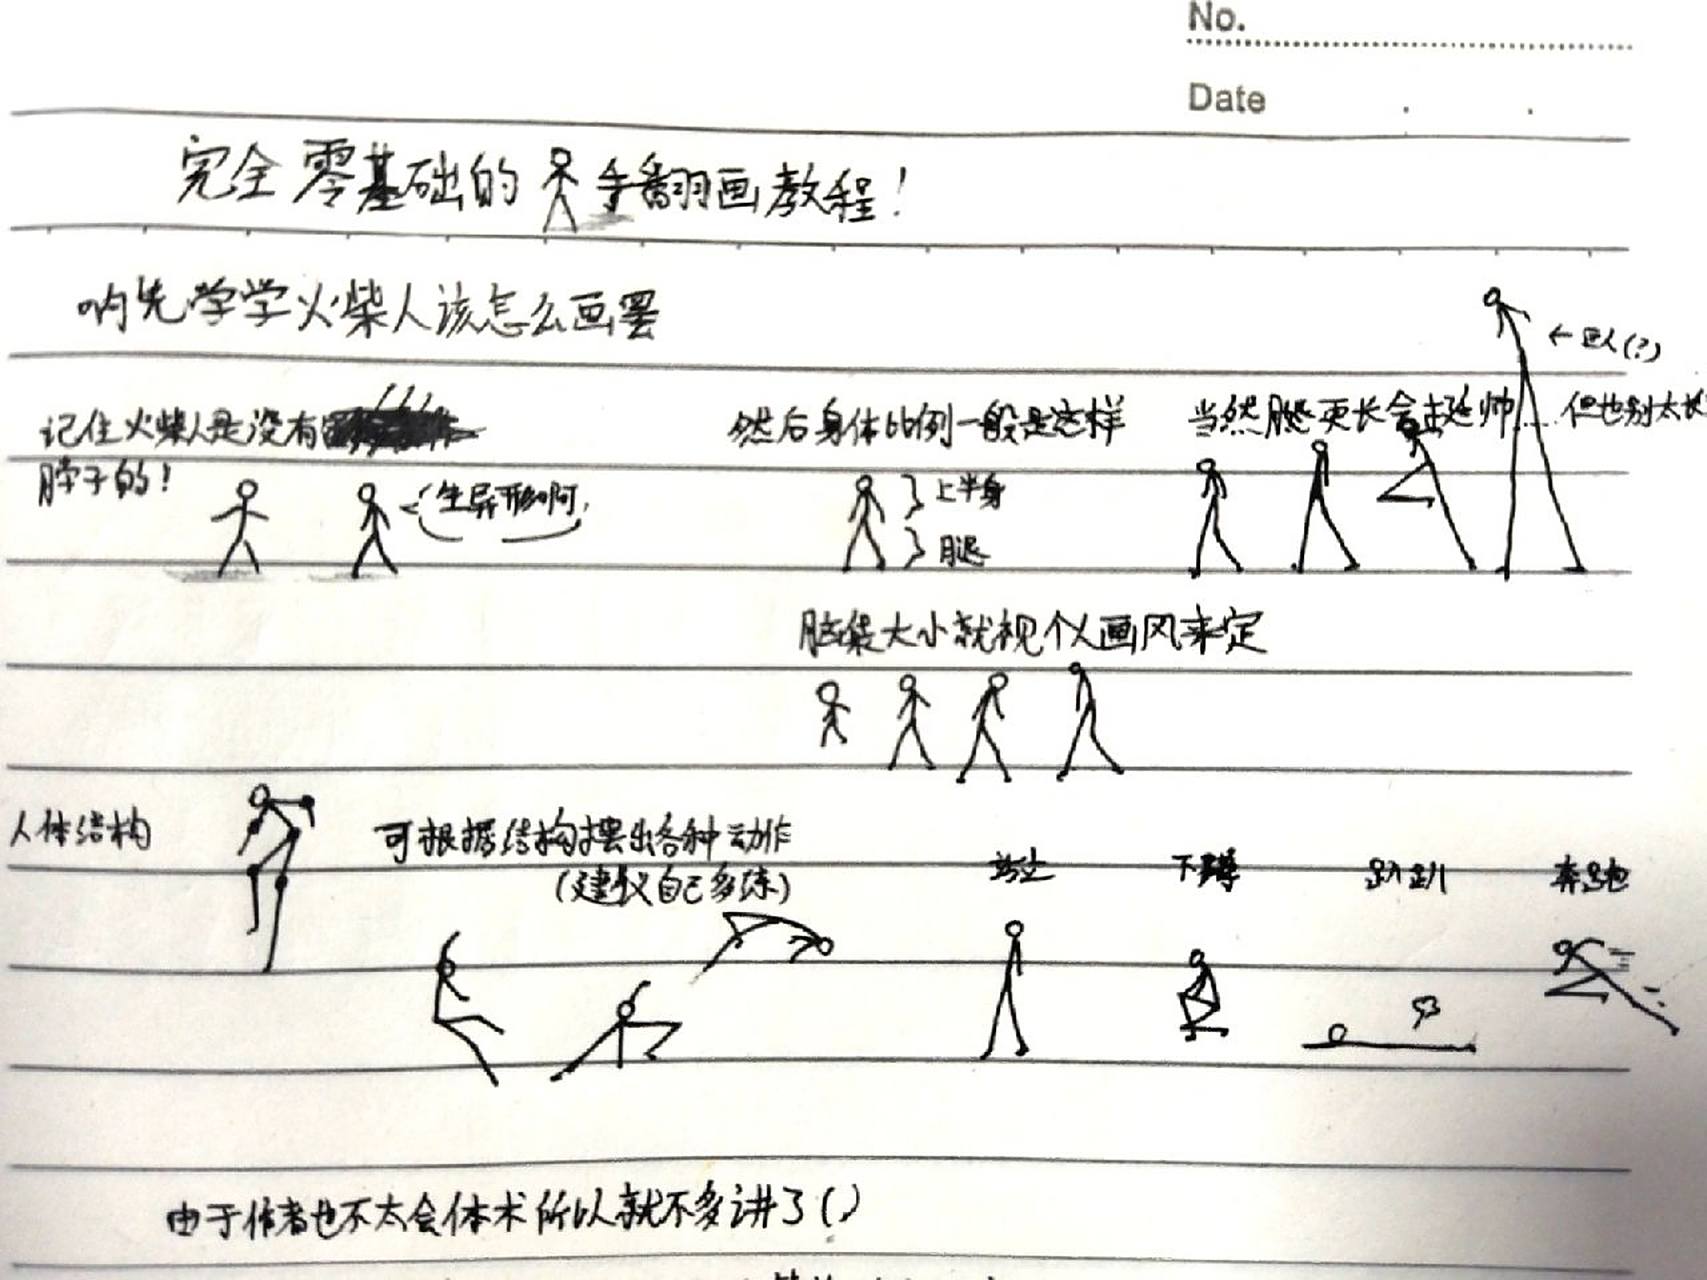 No.
Date
完全零基础的手翻画教程!
呐先学学火柴人该怎么画罢
←巨人(?)
记住火柴人是没有
脖子的!
(生异形啊,
然后身体比例一般是这样
上半身
腿
当然腿更长会挺帅……但也别太长
脑袋大小就视个人画风来定
人体结构
可根据结构摆出各种动作
(建议自己多练)
站立
下蹲
趴趴
奔跑
由于作者也不太会体术所以就不多讲了()